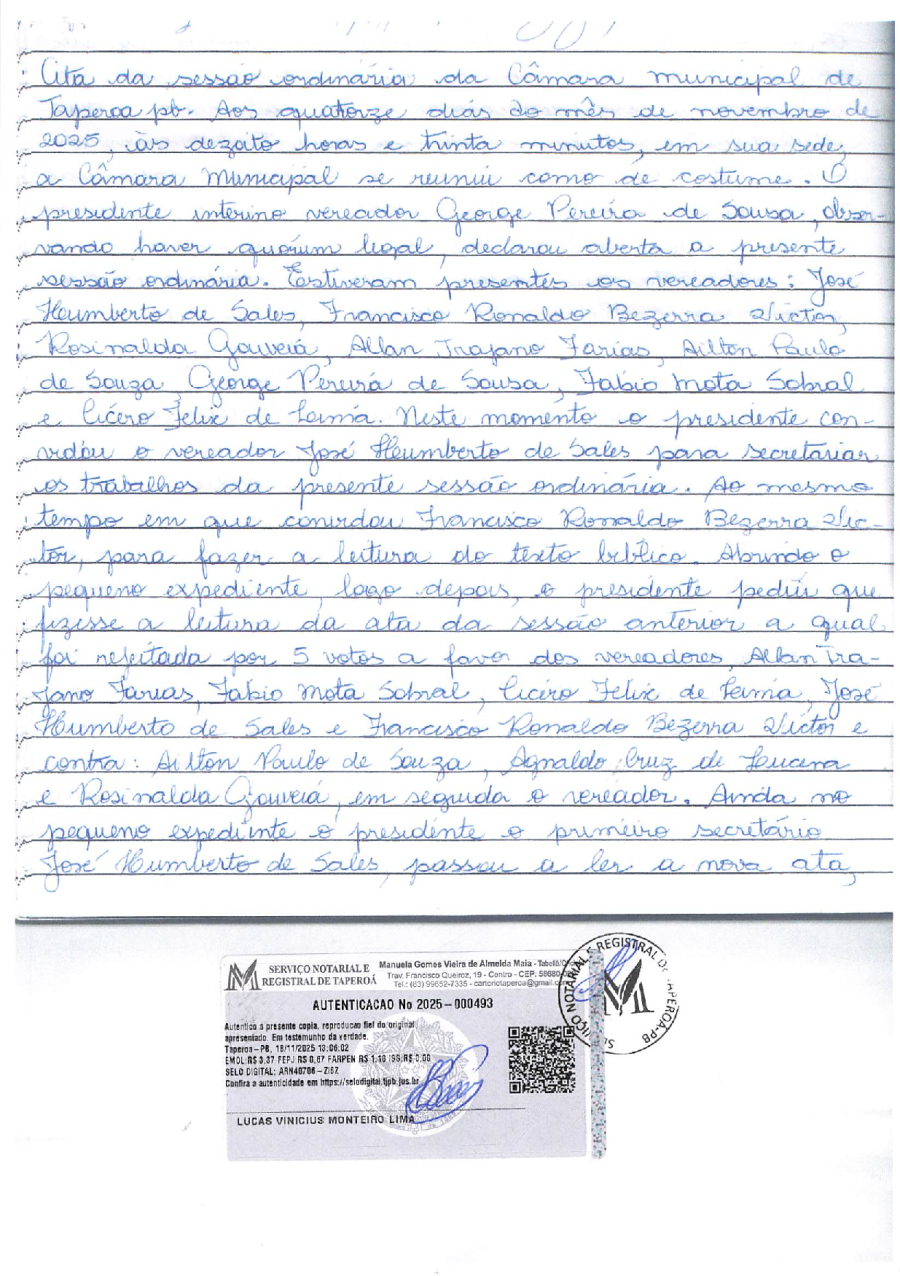 Ata da sessão ordinária da Câmara municipal de
Taperoa pb. Aos quatorze dias do mês de novembro de
2025, às dezoito horas e trinta minutos, em sua sede,
a Câmara Municipal se reuniu como de costume. O
presidente interino vereador George Pereira de Sousa, obser-
vando haver quórum legal, declarou aberta a presente
sessão ordinária. Estiveram presentes os vereadores: José
Heumberto de Sales, Francisco Ronaldo Bezerra Victor,
Rosinalda Gouveia, Allan Trajano Farias, Ailton Paulo
de Souza, George Pereira de Sousa, Fabio Mota Sobral
e Cicero Felix de Lima. Neste momento o presidente con-
vidou o vereador José Heumberto de Sales para secretariar
os trabalhos da presente sessão ordinária. Ao mesmo
tempo em que convidou Francisco Ronaldo Bezerra Vic-
tor, para fazer a leitura do texto bíblico. Abrindo o
pequeno expediente, logo depois, o presidente pediu que
fizesse a leitura da ata da sessão anterior a qual
foi rejeitada por 5 votos a favor dos vereadores, Allan Tra-
jano Farias, Fabio Mota Sobral, Cicero Felix de Lima, José
Humberto de Sales e Francisco Ronaldo Bezerra Victor e
contra: Ailton Paulo de Souza, Agnaldo Cruz de Lucena
e Rosinalda Gouveia, em seguida o vereador. Ainda no
pequeno expediente o presidente o primeiro secretário
José Humberto de Sales, passou a ler a nova ata,
SERVIÇO NOTARIAL E
REGISTRAL DE TAPEROÁ
Manuela Gomes Vieira de Almeida Maia - Tabeliã
Trav. Francisco Queiroz, 19 - Centro - CEP: 58680-
Tel.: (83) 99652-7335 - cartoriotaperoa@gmail.com
AUTENTICACAO No 2025-000493
Autentico a presente copia, reproducao fiel do original
apresentado. Em testemunho da verdade.
Taperoa-PB, 18/11/2025 13:06:02
EMOL:R$ 3,37 FEPJ:R$ 0,67 FARPEN R$ 1,10 ISS:R$ 0,00
SELO DIGITAL: ARN40706-ZI6Z
Confira a autenticidade em https://selodigital.tjpb.jus.br
LUCAS VINICIUS MONTEIRO LIMA
SERVIÇO NOTARIAL E REGISTRAL DE TAPEROÁ-PB